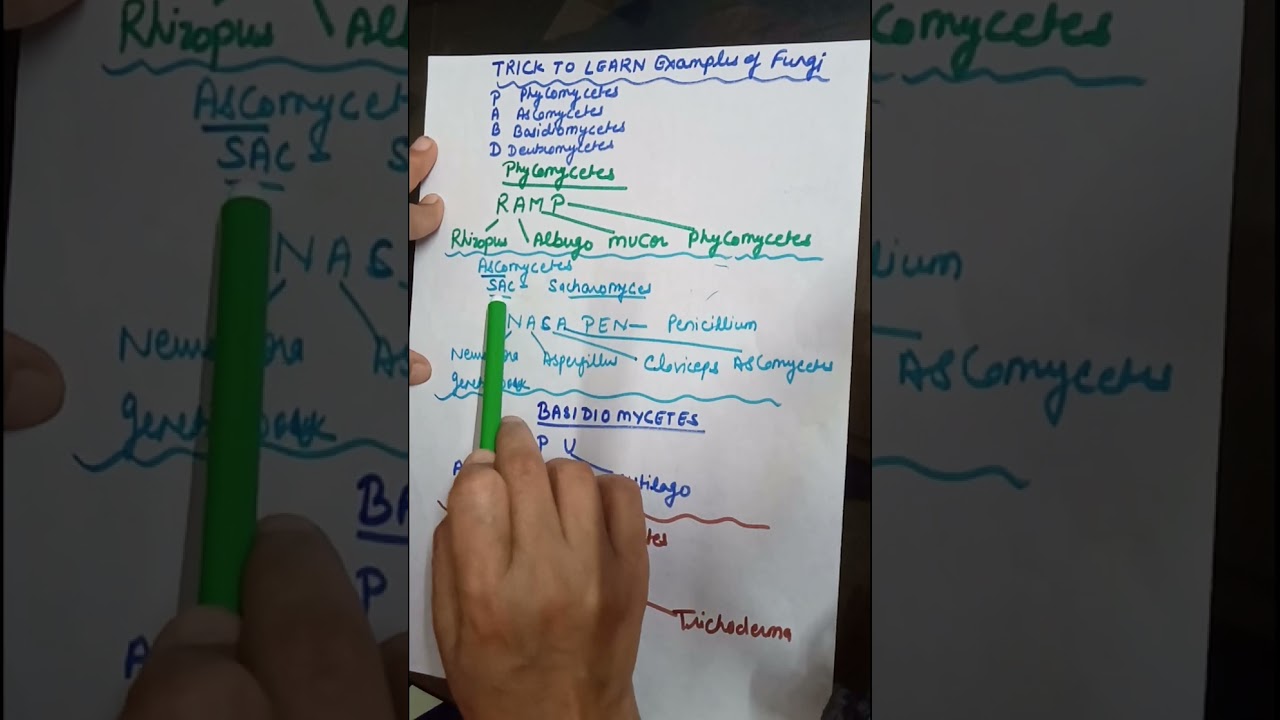 TRICK TO LEARN Examples of Fungi
P Phycomycetes
A Ascomycetes
B Basidiomycetes
D Deutromycetes
Phycomycetes
RAMP
Rhizopus Albugo mucor Phycomycetes
Ascomycetes
SAC - Sacharomyces
NASA PEN— Penicillium
Asperfillus Claviceps AsComycetes
BASIDIOMYCETES
P U
Trichoderma